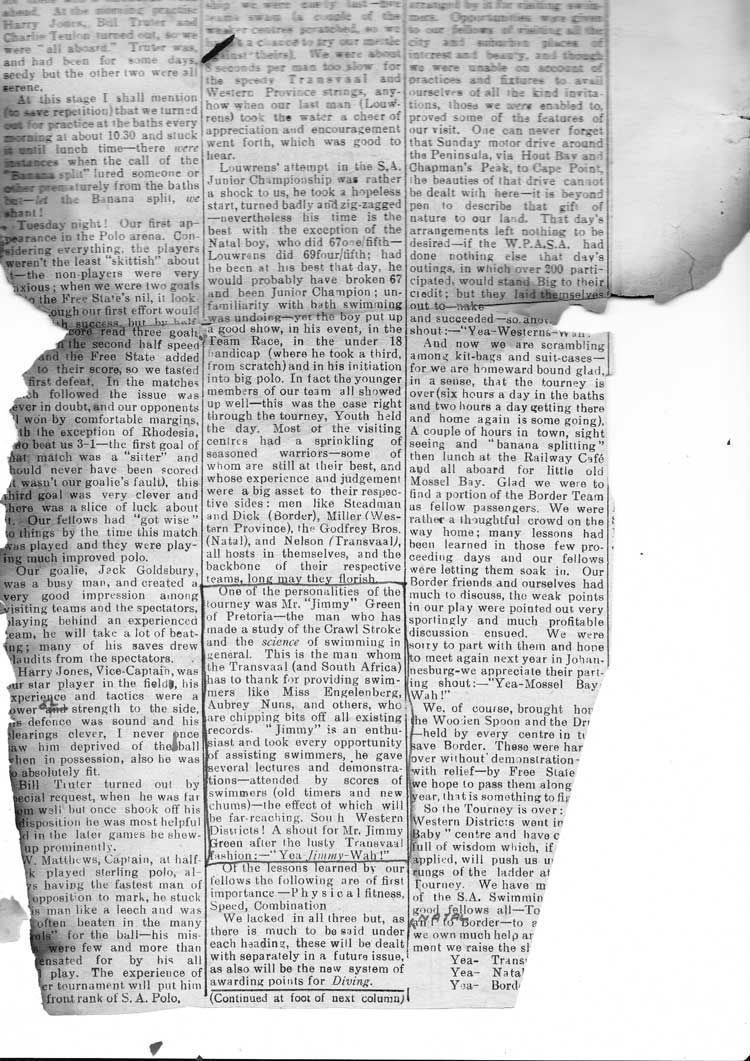 ahead. At the morning practise
Harry Jones, Bill Truter and
Charlie Teulon turned out, so we
were "all aboard." Truter was,
and had been for some days,
seedy but the other two were all
serene.
At this stage I shall mention
(to save repetition) that we turned
out for practice at the baths every
morning at about 10.30 and stuck
it until lunch time—there were
instances when the call of the
"Banana split" lured someone or
other prematurely from the baths
but—let the Banana split, we
shant!
Tuesday night! Our first ap-
pearance in the Polo arena. Con-
sidering everything, the players
weren't the least "skittish" about
it—the non-players were very
anxious; when we were two goals
to the Free State's nil, it look
ough our first effort would
success, but by half
score read three goals
the second half speed
and the Free State added
to their score, so we tasted
first defeat. In the matches
h followed the issue was
ever in doubt, and our opponents
won by comfortable margins,
th the exception of Rhodesia,
ho beat us 3-1—the first goal of
that match was a "sitter" and
hould never have been scored
t wasn't our goalie's fault), this
hird goal was very clever and
here was a slice of luck about
t. Our fellows had "got wise"
to things by the time this match
was played and they were play-
ing much improved polo.
Our goalie, Jack Goldsbury,
was a busy man, and created a
very good impression among
visiting teams and the spectators,
laying behind an experienced
team, he will take a lot of beat-
ing; many of his saves drew
laudits from the spectators.
Harry Jones, Vice-Captain, was
ur star player in the field, his
experience and tactics were a
ower and strength to the side,
is defence was sound and his
learings clever, I never once
aw him deprived of the ball
hen in possession, also he was
o absolutely fit.
Bill Truter turned out by
ecial request, when he was far
om well but once shook off his
disposition he was most helpful
d in the later games he shew-
up prominently.
W. Matthews, Captain, at half-
k played sterling polo, al-
s having the fastest man of
opposition to mark, he stuck
is man like a leech and was
often beaten in the many
els" for the ball—his mis-
were few and more than
ensated for by his all
play. The experience of
er tournament will put him
front rank of S. A. Polo.
ship we were easily last—five
teams swam (a couple of the
weaker centres scratched, so we
a chance to try our
against theirs). We were about
8 seconds per man too slow for
the speedy Transvaal and
Western Province strings, any-
how when our last man (Louw-
rens) took the water a cheer of
appreciation and encouragement
went forth, which was good to
hear.
Louwrens' attempt in the S.A.
Junior Championship was rather
a shock to us, he took a hopeless
start, turned badly and zig-zagged
—nevertheless his time is the
best with the exception of the
Natal boy, who did 67one/fifth—
Louwrens did 69four/fifth; had
he been at his best that day, he
would probably have broken 67
and been Junior Champion; un-
familiarity with bath swimming
was undoing—yet the boy put up
a good show, in his event, in the
Team Race, in the under 18
handicap (where he took a third,
from scratch) and in his initiation
into big polo. In fact the younger
members of our team all showed
up well—this was the case right
through the tourney, Youth held
the day. Most of the visiting
centres had a sprinkling of
seasoned warriors—some of
whom are still at their best, and
whose experience and judgement
were a big asset to their respec-
tive sides: men like Steadman
and Dick (Border), Miller (Wes-
tern Province), the Godfrey Bros.
(Natal), and Nelson (Transvaal),
all hosts in themselves, and the
backbone of their respective
teams, long may they florish.
One of the personalities of the
tourney was Mr. "Jimmy" Green
of Pretoria—the man who has
made a study of the Crawl Stroke
and the science of swimming in
general. This is the man whom
the Transvaal (and South Africa)
has to thank for providing swim-
mers like Miss Engelenberg,
Aubrey Nuns, and others, who
are chipping bits off all existing
records. "Jimmy" is an enthu-
siast and took every opportunity
of assisting swimmers, he gave
several lectures and demonstra-
tions—attended by scores of
swimmers (old timers and new
chums)—the effect of which will
be far-reaching. Sou h Western
Districts! A shout for Mr. Jimmy
Green after the lusty Transvaal
fashion:—"Yea Jimmy-Wah!"
Of the lessons learned by our
fellows the following are of first
importance—Physical fitness,
Speed, Combination
We lacked in all three but, as
there is much to be said under
each heading, these will be dealt
with separately in a future issue,
as also will be the new system of
awarding points for Diving.
(Continued at foot of next column)
arranged by it for visiting swim-
mers. Opportunities were given
to our fellows of visiting all the
city and suburban places of
interest and beauty, and though
we were unable on account of
practices and fixtures to avail
ourselves of all the kind invita-
tions, those we were enabled to,
proved some of the features of
our visit. One can never forget
that Sunday motor drive around
the Peninsula, via Hout Bay and
Chapman's Peak, to Cape Point,
the beauties of that drive cannot
be dealt with here—it is beyond
pen to describe that gift of
nature to our land. That day's
arrangements left nothing to be
desired—if the W.P.A.S.A. had
done nothing else that day's
outings, in which over 200 parti-
cipated, would stand Big to their
credit; but they laid themselves
out to make
and succeeded—so ano
shout:—"Yea-Westerns-Wah!
And now we are scrambling
among kit-bags and suit-cases—
for we are homeward bound glad,
in a sense, that the tourney is
over (six hours a day in the baths
and two hours a day getting there
and home again is some going).
A couple of hours in town, sight
seeing and "banana splitting"
then lunch at the Railway Café
and all aboard for little old
Mossel Bay. Glad we were to
find a portion of the Border Team
as fellow passengers. We were
rather a thoughtful crowd on the
way home; many lessons had
been learned in those few pro-
ceeding days and our fellows
were letting them soak in. Our
Border friends and ourselves had
much to discuss, the weak points
in our play were pointed out very
sportingly and much profitable
discussion ensued. We were
sorry to part with them and hope
to meet again next year in Johan-
nesburg—we appreciate their part-
ing shout:—"Yea-Mossel Bay
Wah!"
We, of course, brought hom
the Wooden Spoon and the Dr
—held by every centre in t
save Border. These were han
over without demonstration—
with relief—by Free State
we hope to pass them along
year, that is something to fig
So the Tourney is over:
Western Districts went in
Baby" centre and have c
full of wisdom which, if
applied, will push us u
rungs of the ladder at
Tourney. We have m
of the S.A. Swimmin
good fellows all—To
NATAL
an to Border—to a
we own much help an
ment we raise the sh
Yea- Trans
Yea- Natal
Yea- Bord